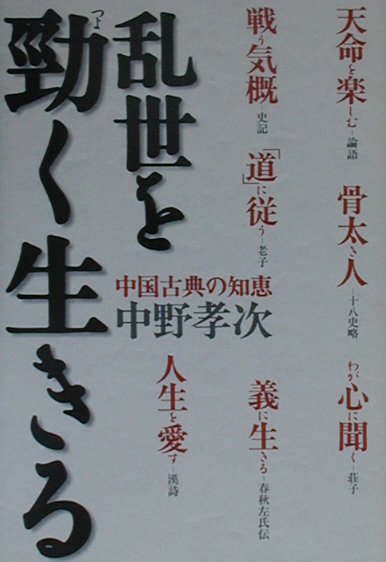 天命を楽しむ―論語
骨太き人―十八史略
わが心に聞く―荘子
戦う気概―史記
「道」に従う―老子
義に生きる―春秋左氏伝
中国古典の知恵
中野孝次
人生を愛す―漢詩
乱世を
勁く生きる
つよ